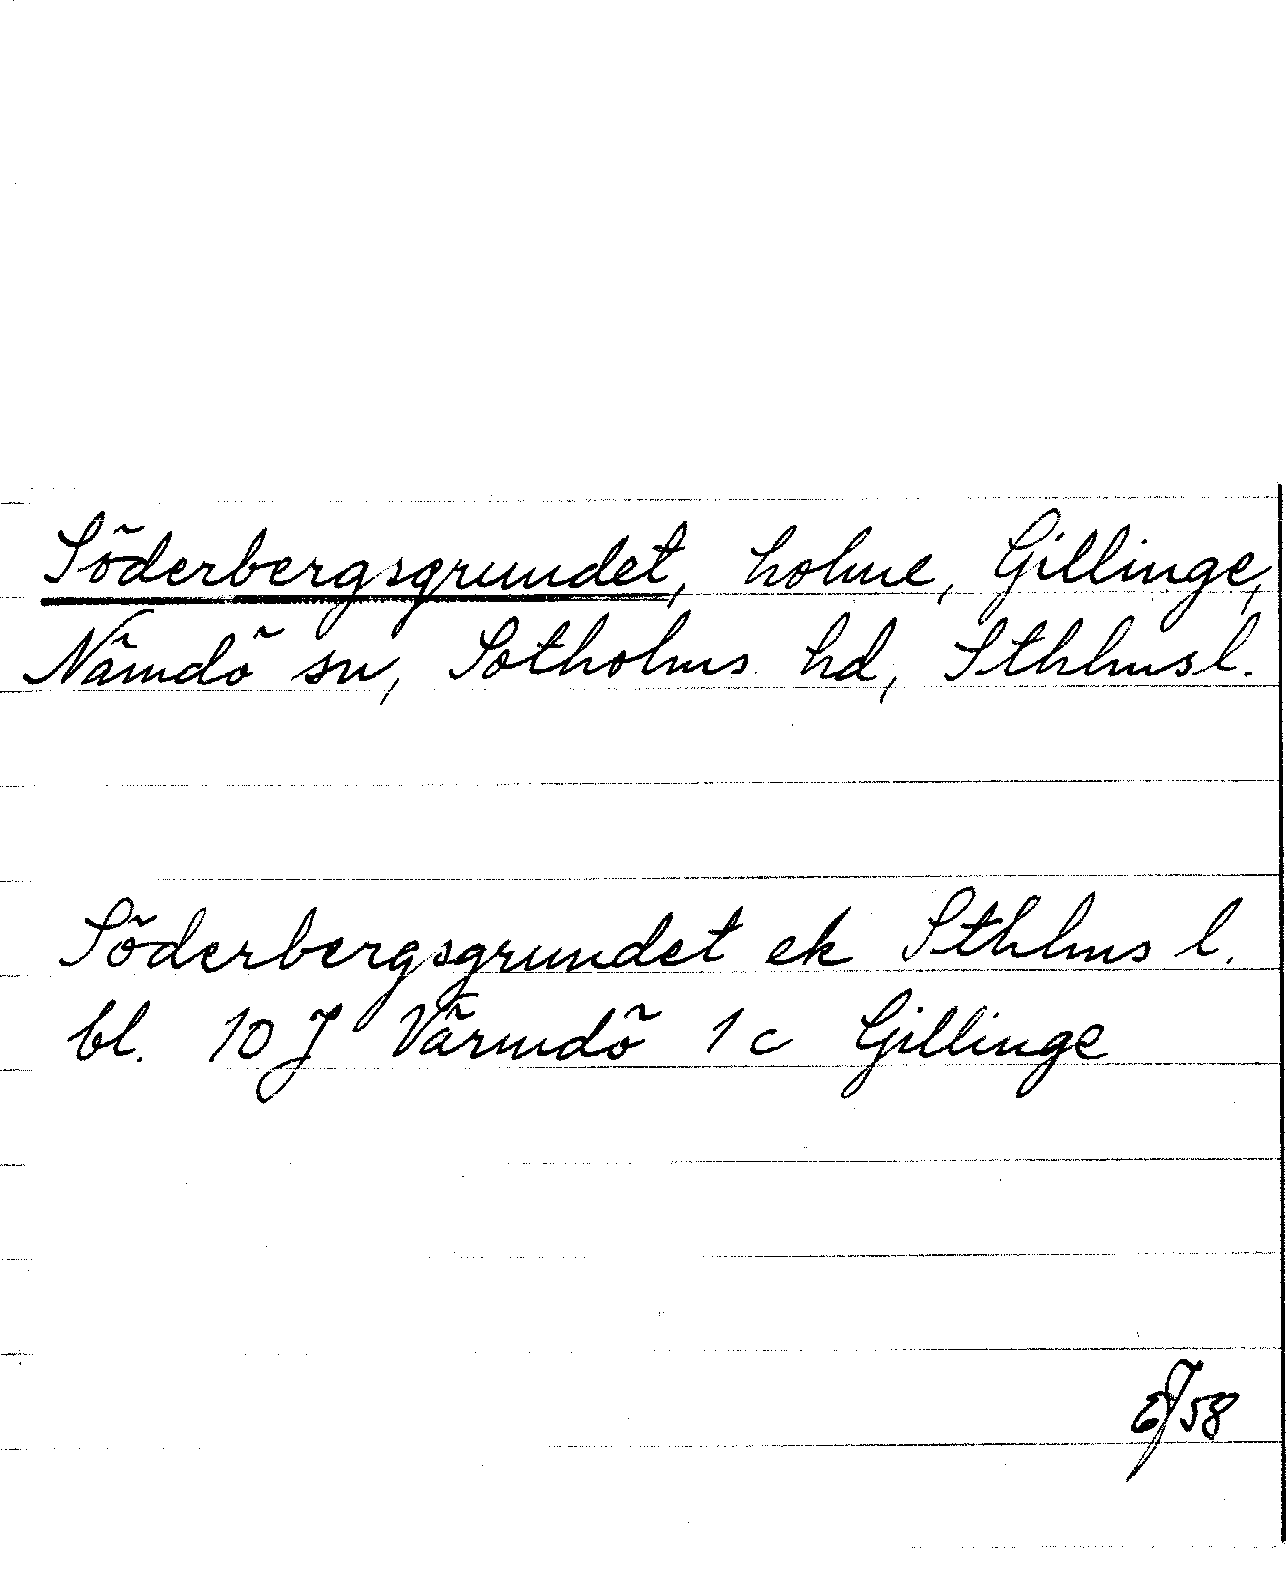 Söderbergsgrundet, holme, Gillinge,
Nämdö sn, Sotholms hd, Sthlmsl.
Söderbergsgrundet ek Sthlms l.
bl. 10 J Värmdö 1 c Gillinge
58